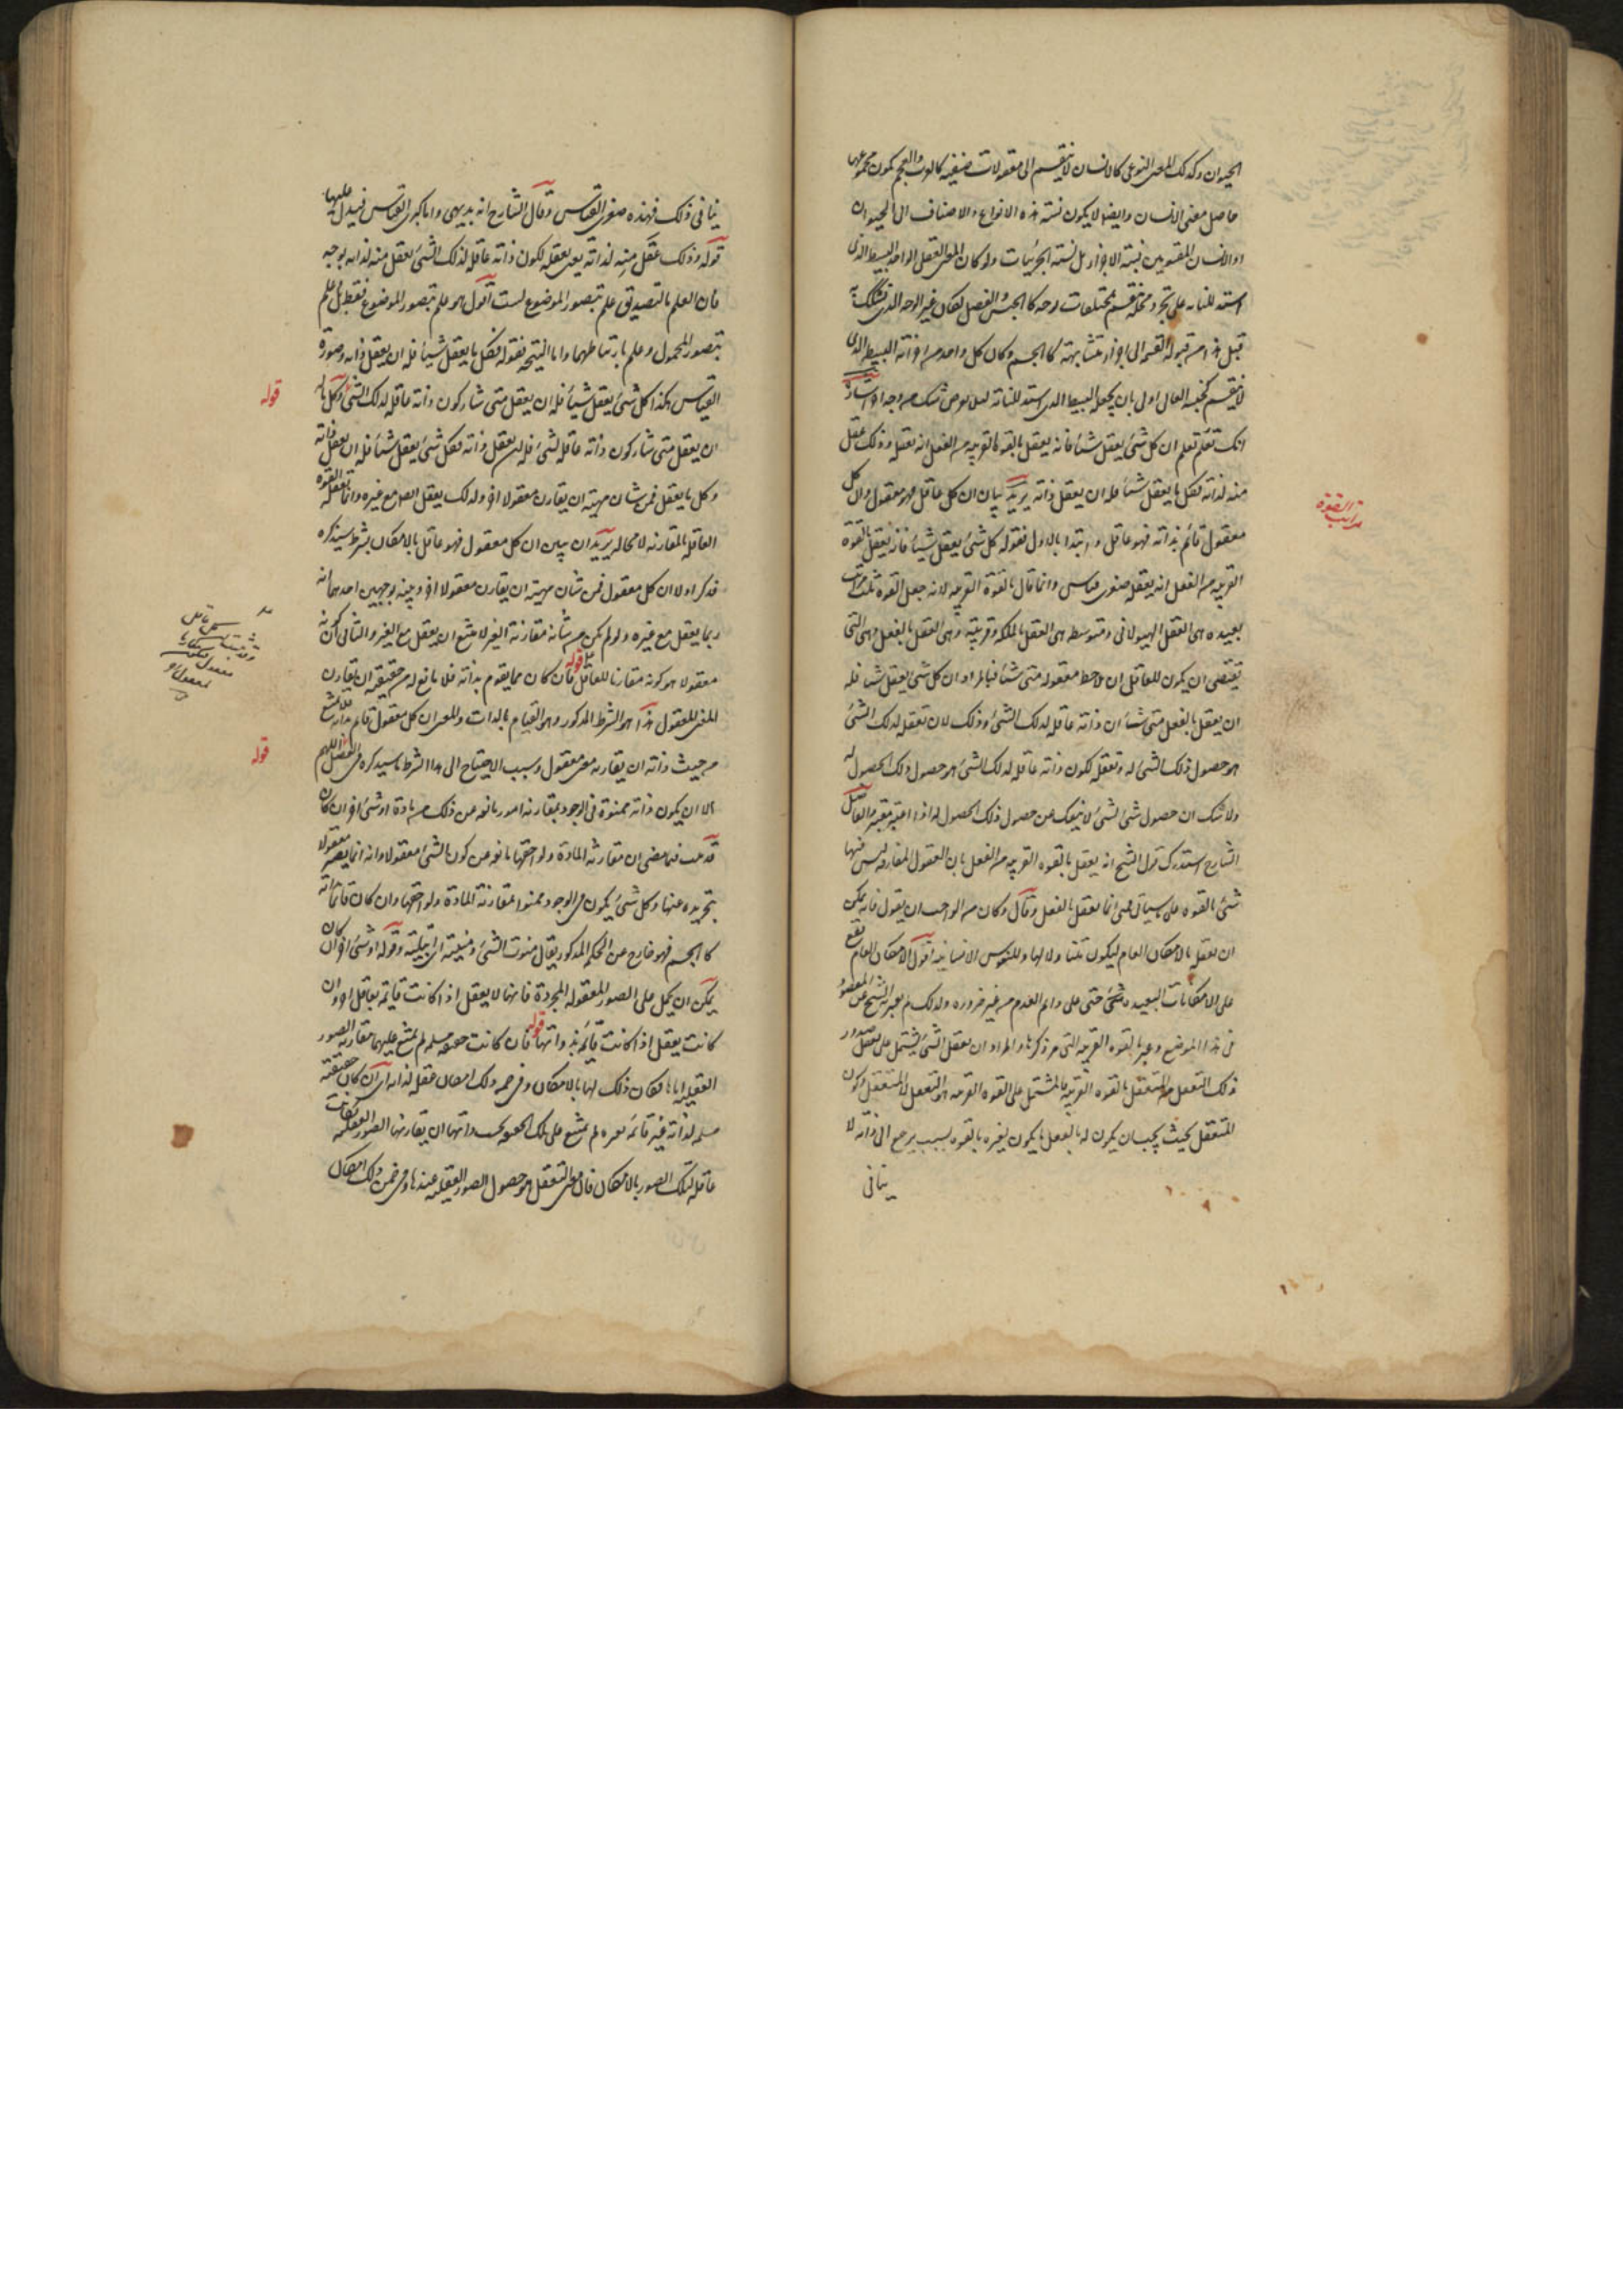 الحيوان وكذلك المعنى النوعى كالانسان لا ينقسم الى معقولات صنفيه كالعرب والعجم يكون مجموعها
حاصل معنى الانسان وايضا لا يكون نسبته هذه الانواع والاصناف الى الحيوان
او الانسان المقسومين نسبة الاجزاء بل نسبة الجزئيات ولو كان المعنى العقلى الواحد البسيط الذى
استدللنا به على تجرد محله ينقسم بمختلفات بوجه كالجنس والفصل لكان غير الوجه الذى يشكك به
قبل هذا من قبوله القسمة الى اجزاء متشابهة كالجسم وكان كل واحد من اجزائه البسيط الذى
لا ينقسم كجنسه العالى اولى بان يجعله البسيط الذى استدللنا به لئلا يعرض شك من وجه اخر اشارة
انك تعلم ان كل شئ يعقل شيئا فانه يعقل بالقوة القريبه من الفعل انه يعقله وذلك عقل
منه لذاته فكل ما يعقل شيئا فله ان يعقل ذاته يريد بيان ان كل عاقل فهو معقول وان كل
معقول قائم بذاته فهو عاقل وابتدا بالاول فقوله كل شئ يعقل شيئا فانه يعقل بالقوة
القريبه من الفعل انه يعقله صغرى قياس وانما قال بالقوة القريبه لانه جعل القوة ثلث مراتب
بعيده هى العقل الهيولانى ومتوسطه هى العقل بالملكه وقريبة وهى العقل بالفعل وهى التى
تقتضى ان يكون للعاقل ان يلاحظ معقوله متى شاء فالمراد ان كل شئ يعقل شيئا فله
ان يعقل بالفعل متى شاء ان ذاته عاقله لذلك الشئ وذلك لان تعقله لذلك الشئ
هو حصول ذلك الشئ له وتعقله لكون ذاته عاقله لذلك الشئ هو حصول ذلك الحصول له
ولا شك ان حصول شئ لشئ لا ينفك عن حصول ذلك الحصول له اذا اعتبر معتبر والفاضل
الشارح استدرك قول الشيخ انه يعقل بالقوه القريبه من الفعل بان العقول المفارقه ليس فيها
شئ بالقوه على ما سياتى فهى انما يعقل بالفعل وقال وكان من الواجب ان يقول فانه يمكن
ان يعقل بالامكان العام ليكون متناولا لها وللنفوس الانسانيه اقول الامكان العام يقع
على الامكانات البعيده حتى على دائم العدم من غير ضروره ولذلك لم يعبر الشيخ عن المقصود
فى هذا الموضع وعبر بالقوه القريبه التى مر ذكرها والمراد ان تعقل الشئ يشتمل على تعقل صدور
ذلك التعقل من المتعقل بالقوه القريبه فالمشتمل على القوه القريبه هو التعقل لا المتعقل وكون
المتعقل بحيث يجب ان يكون له بالفعل ما يكون لغيره بالقوه بسبب يرجع الى ذاته لا
ينافى
مراتب القوه
ينافى ذلك فهذه صغرى القياس وقال الشارح انه بديهى واما كبرى القياس فيدل عليها
قوله وذلك عقل منه لذاته يعنى تعقله لكون ذاته عاقله لذلك الشئ تعقل منه لذاته بوجه
فان العلم بالتصديق علم بتصور الموضوع لست اقول هو علم بتصور الموضوع فقط بل علم
بتصور المحمول وعلم بارتباطهما واما النتيجه فقوله فكل ما يعقل شيئا فله ان يعقل ذاته وصورة
القياس هكذا كل شئ يعقل شيئا فله ان يعقل متى شاء كون ذاته عاقله لذلك الشئ وكل ما له
ان يعقل متى شاء كون ذاته عاقله لشئ فله ان يعقل ذاته فكل شئ يعقل شيئا فله ان يعقل ذاته
وكل ما يعقل فمن شان مهيته ان يقارن معقولا اخر ولذلك يعقل ايضا مع غيره وانما تعقله القوة
العاقله بالمقارنه لا محاله يريد ان يبين ان كل معقول فهو عاقل بالامكان بشرط سيذكره
فذكر اولا ان كل معقول فمن شان مهيته ان يقارن معقولا اخر وبينه بوجهين احدهما انه
ربما يعقل مع غيره ولو لم يكن من شانه مقارنة الغير لامتنع ان يعقل مع الغير والثانى ان كونه
معقولا هو كونه مقارنا للعاقل قوله فان كان مما يقوم بذاته فلا مانع له من حقيقته ان يقارن
المعنى المعقول هذا هو الشرط المذكور وهو القيام بالذات والمعنى ان كل معقول قام بذاته فلا يمتنع
من حيث ذاته ان يقارنه معنى معقول وسبب الاحتياج الى هذا الشرط ما سيذكره فى الفصل اللهم
الا ان يكون ذاته ممنوة فى الوجود بمقارنة امور مانعه عن ذلك من مادة او شئ اخر ان كان
قد مر فيما مضى ان مقارنة المادة ولواحقها مانع عن كون الشئ معقولا وانه انما يصير معقولا
بتجريده عنها وكل شئ يكون فى الوجود ممنوا بمقارنة المادة ولواحقها وان كان قائما بذاته
كالجسم فهو خارج عن الحكم المذكور يقال منوت الشئ ومنيته اى ابتليته وقوله او شئ اخر ان كان
يمكن ان يحمل على الصور المعقوله المجردة فانها لا يعقل اذا كانت قائمه بعاقل اخر وان
كانت يعقل اذا كانت قائمة بذواتها قوله فان كانت حقيقته مسلمه لم يمتنع عليها مقارنه الصور
العقليه اياها فكان ذلك لها بالامكان وفى ضمن ذلك امكان عقله لذاته اى ان كان حقيقته
مسلمه لذاته غير قائمه بغيره لم يمتنع على تلك الحقيقه بحسب ذاتها ان يقارنها الصور العقليه فكانت
عاقله لتلك الصور بالامكان فان معنى التعقل هو حصول الصور العقليه عندها وفى ضمن ذلك امكان
قوله
قوله